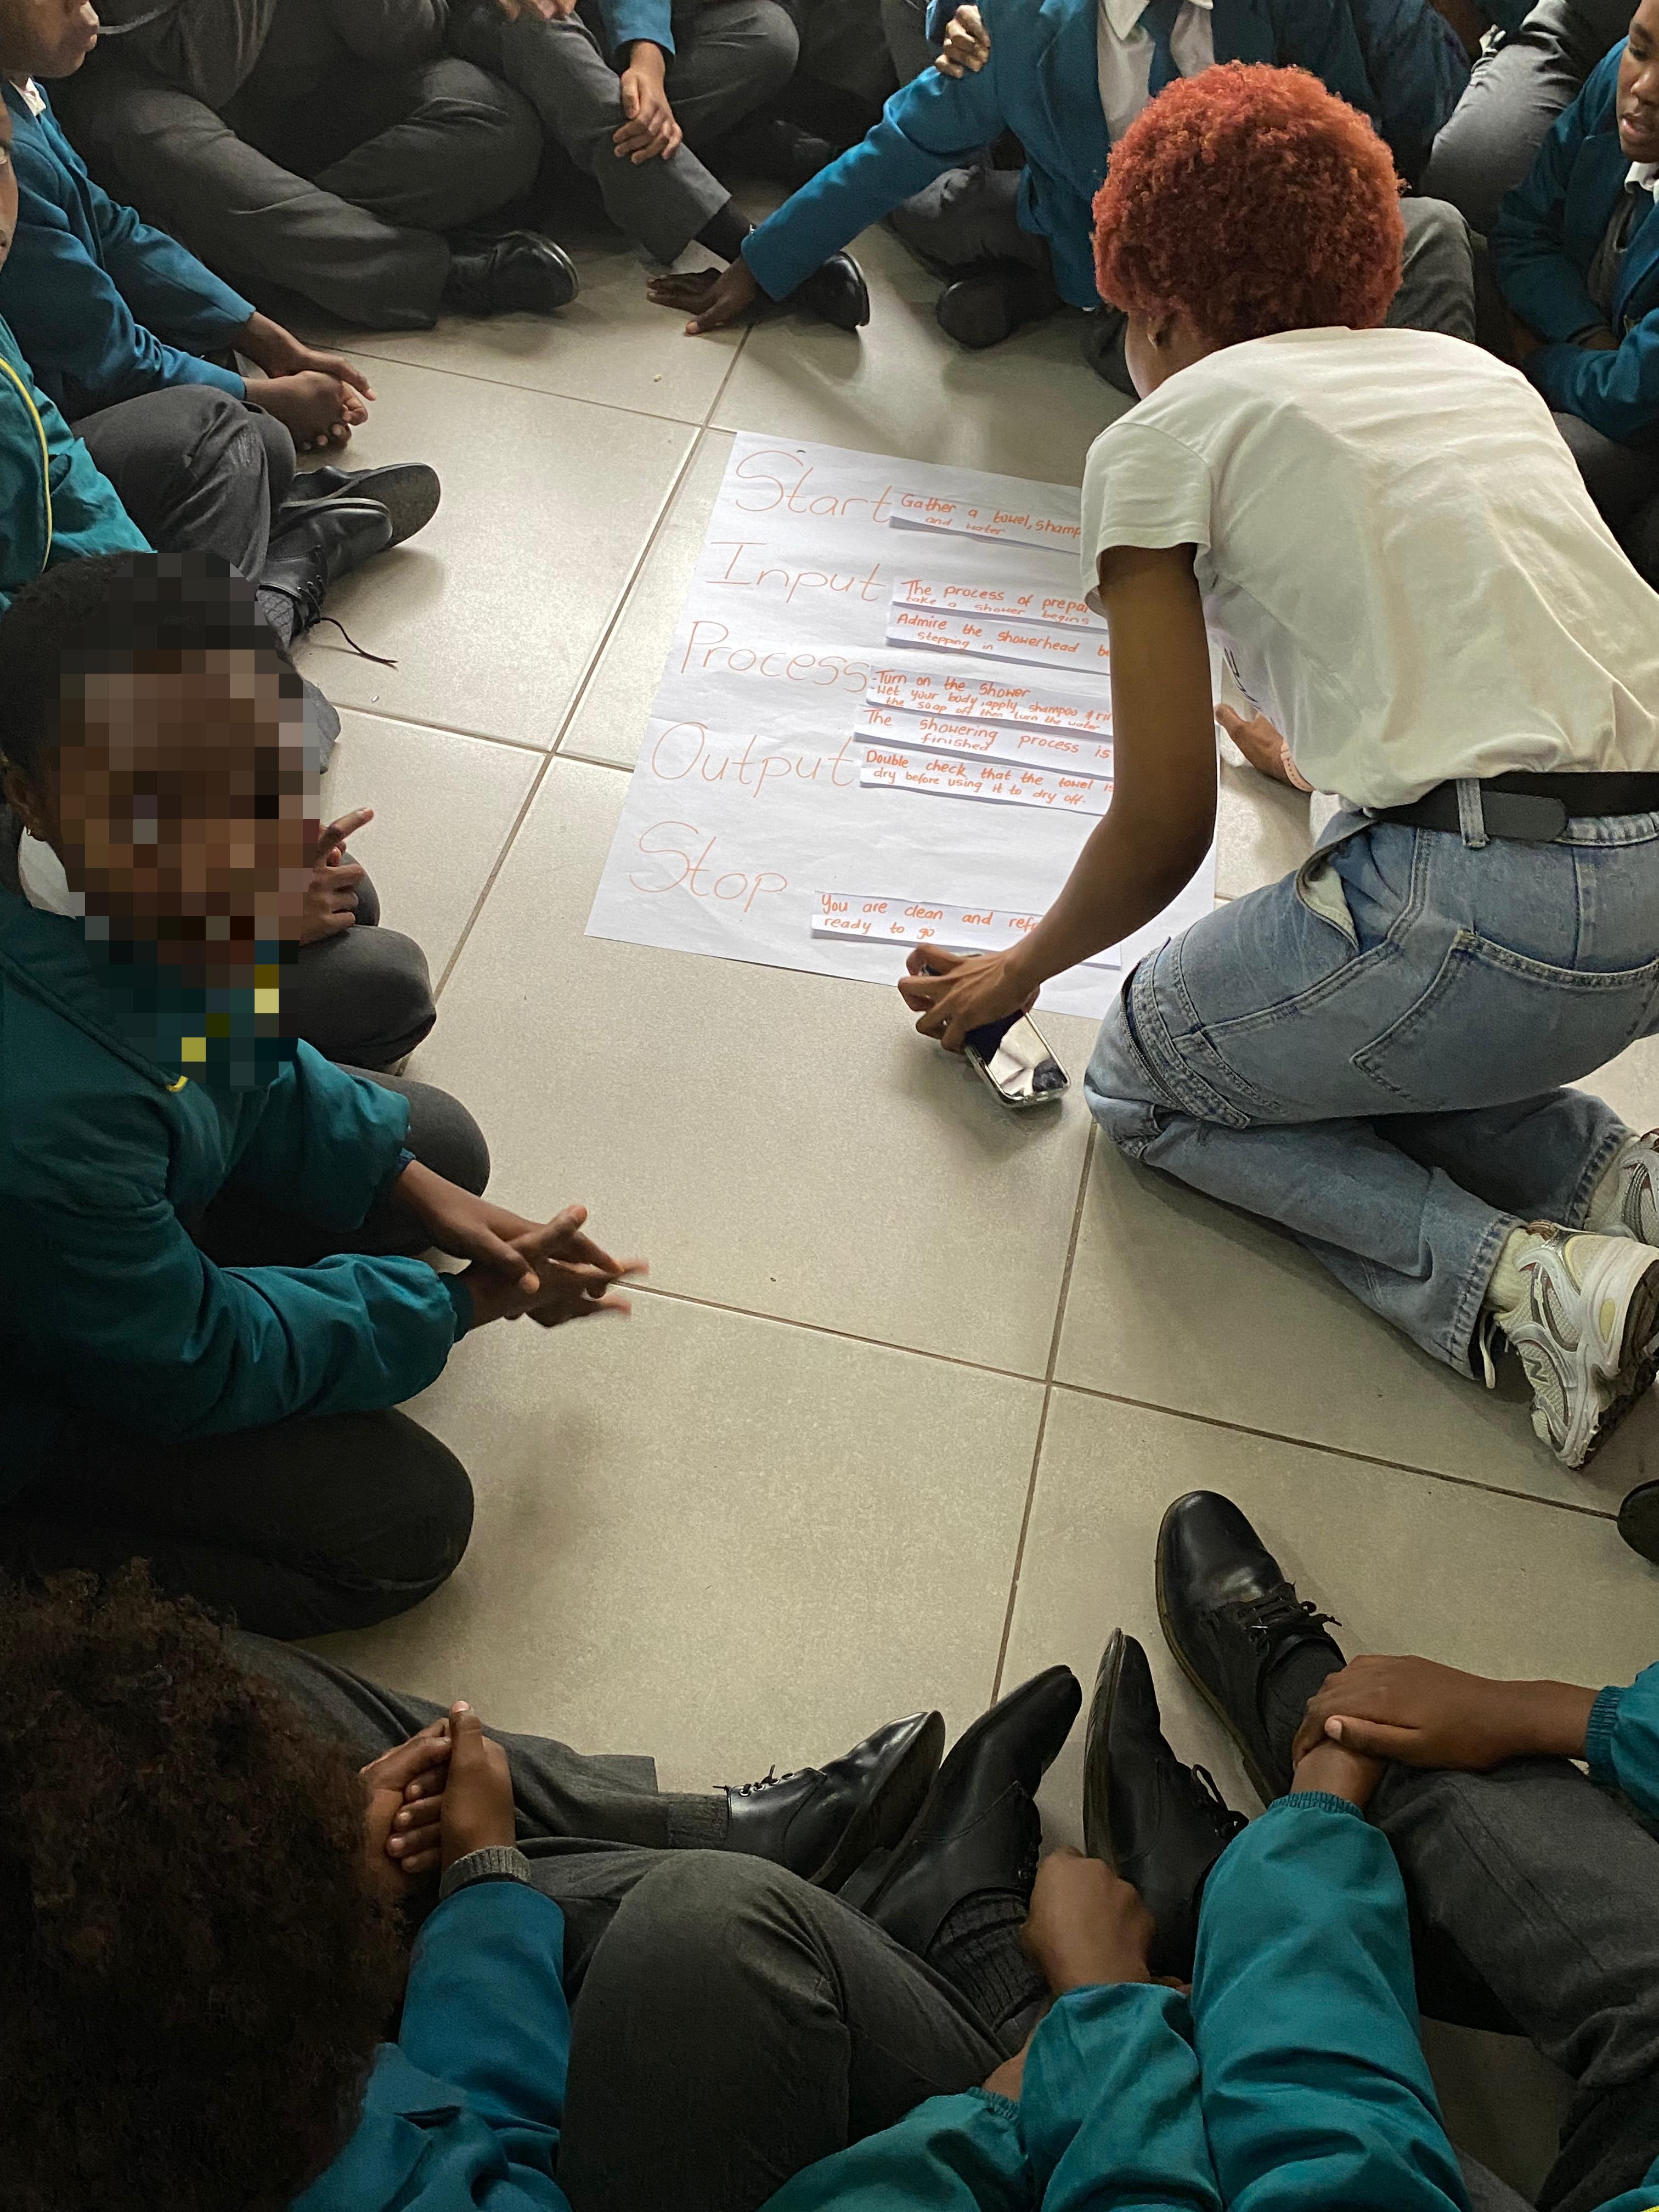 Start
Gather a towel, shamp
and water
Input
The process of prepar
take a shower begins
Admire the showerhead be
stepping in
Process
-Turn on the shower
-Wet your body, apply shampoo & rin
the soap off then turn the water
The showering process is
finished
Output
Double check that the towel is
dry before using it to dry off.
Stop
You are clean and refr
ready to go